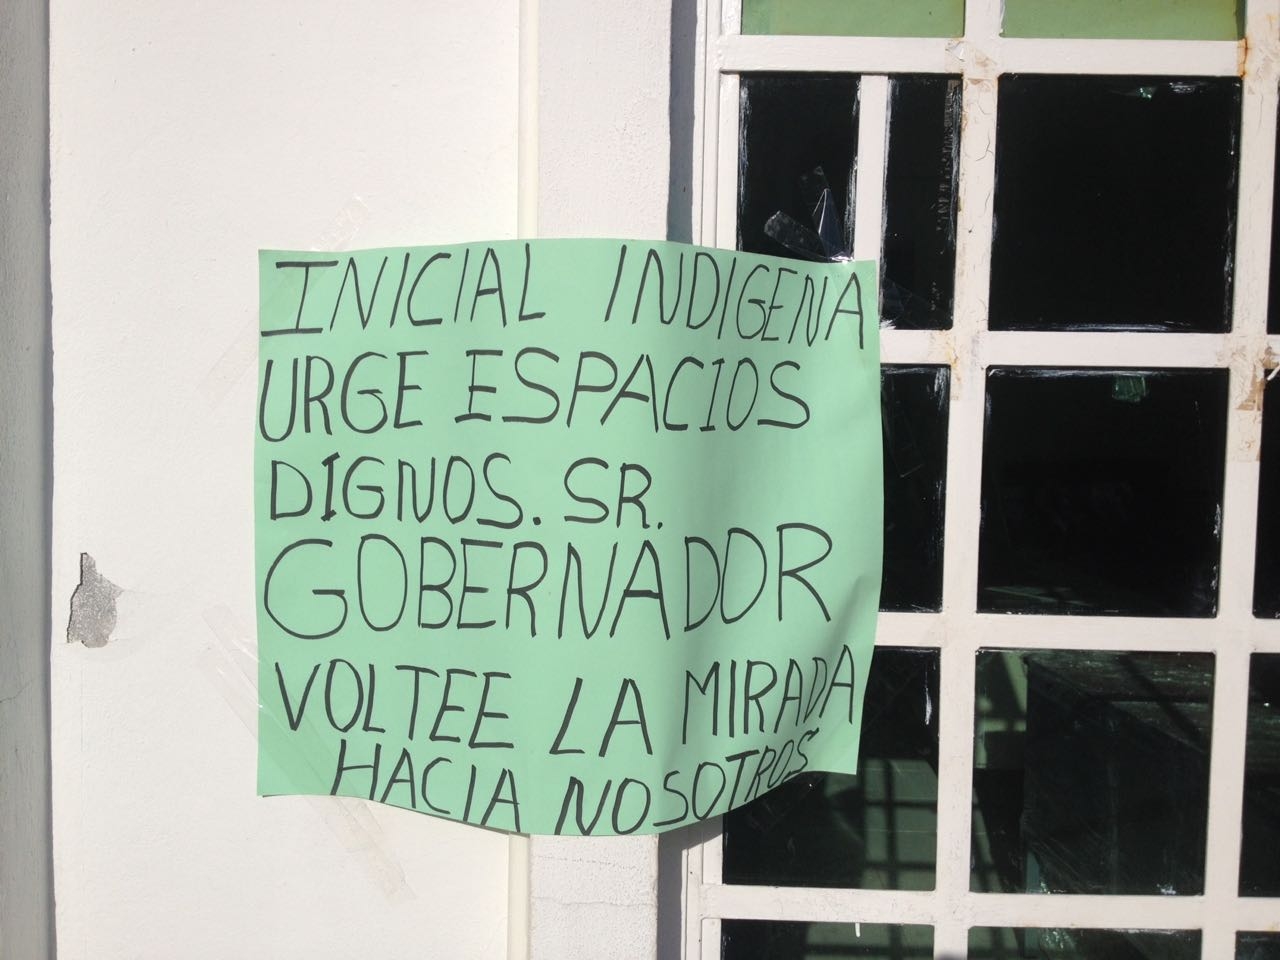 INICIAL INDIGENA
URGE ESPACIOS
DIGNOS. SR.
GOBERNADOR
VOLTEE LA MIRADA
HACIA NOSOTROS